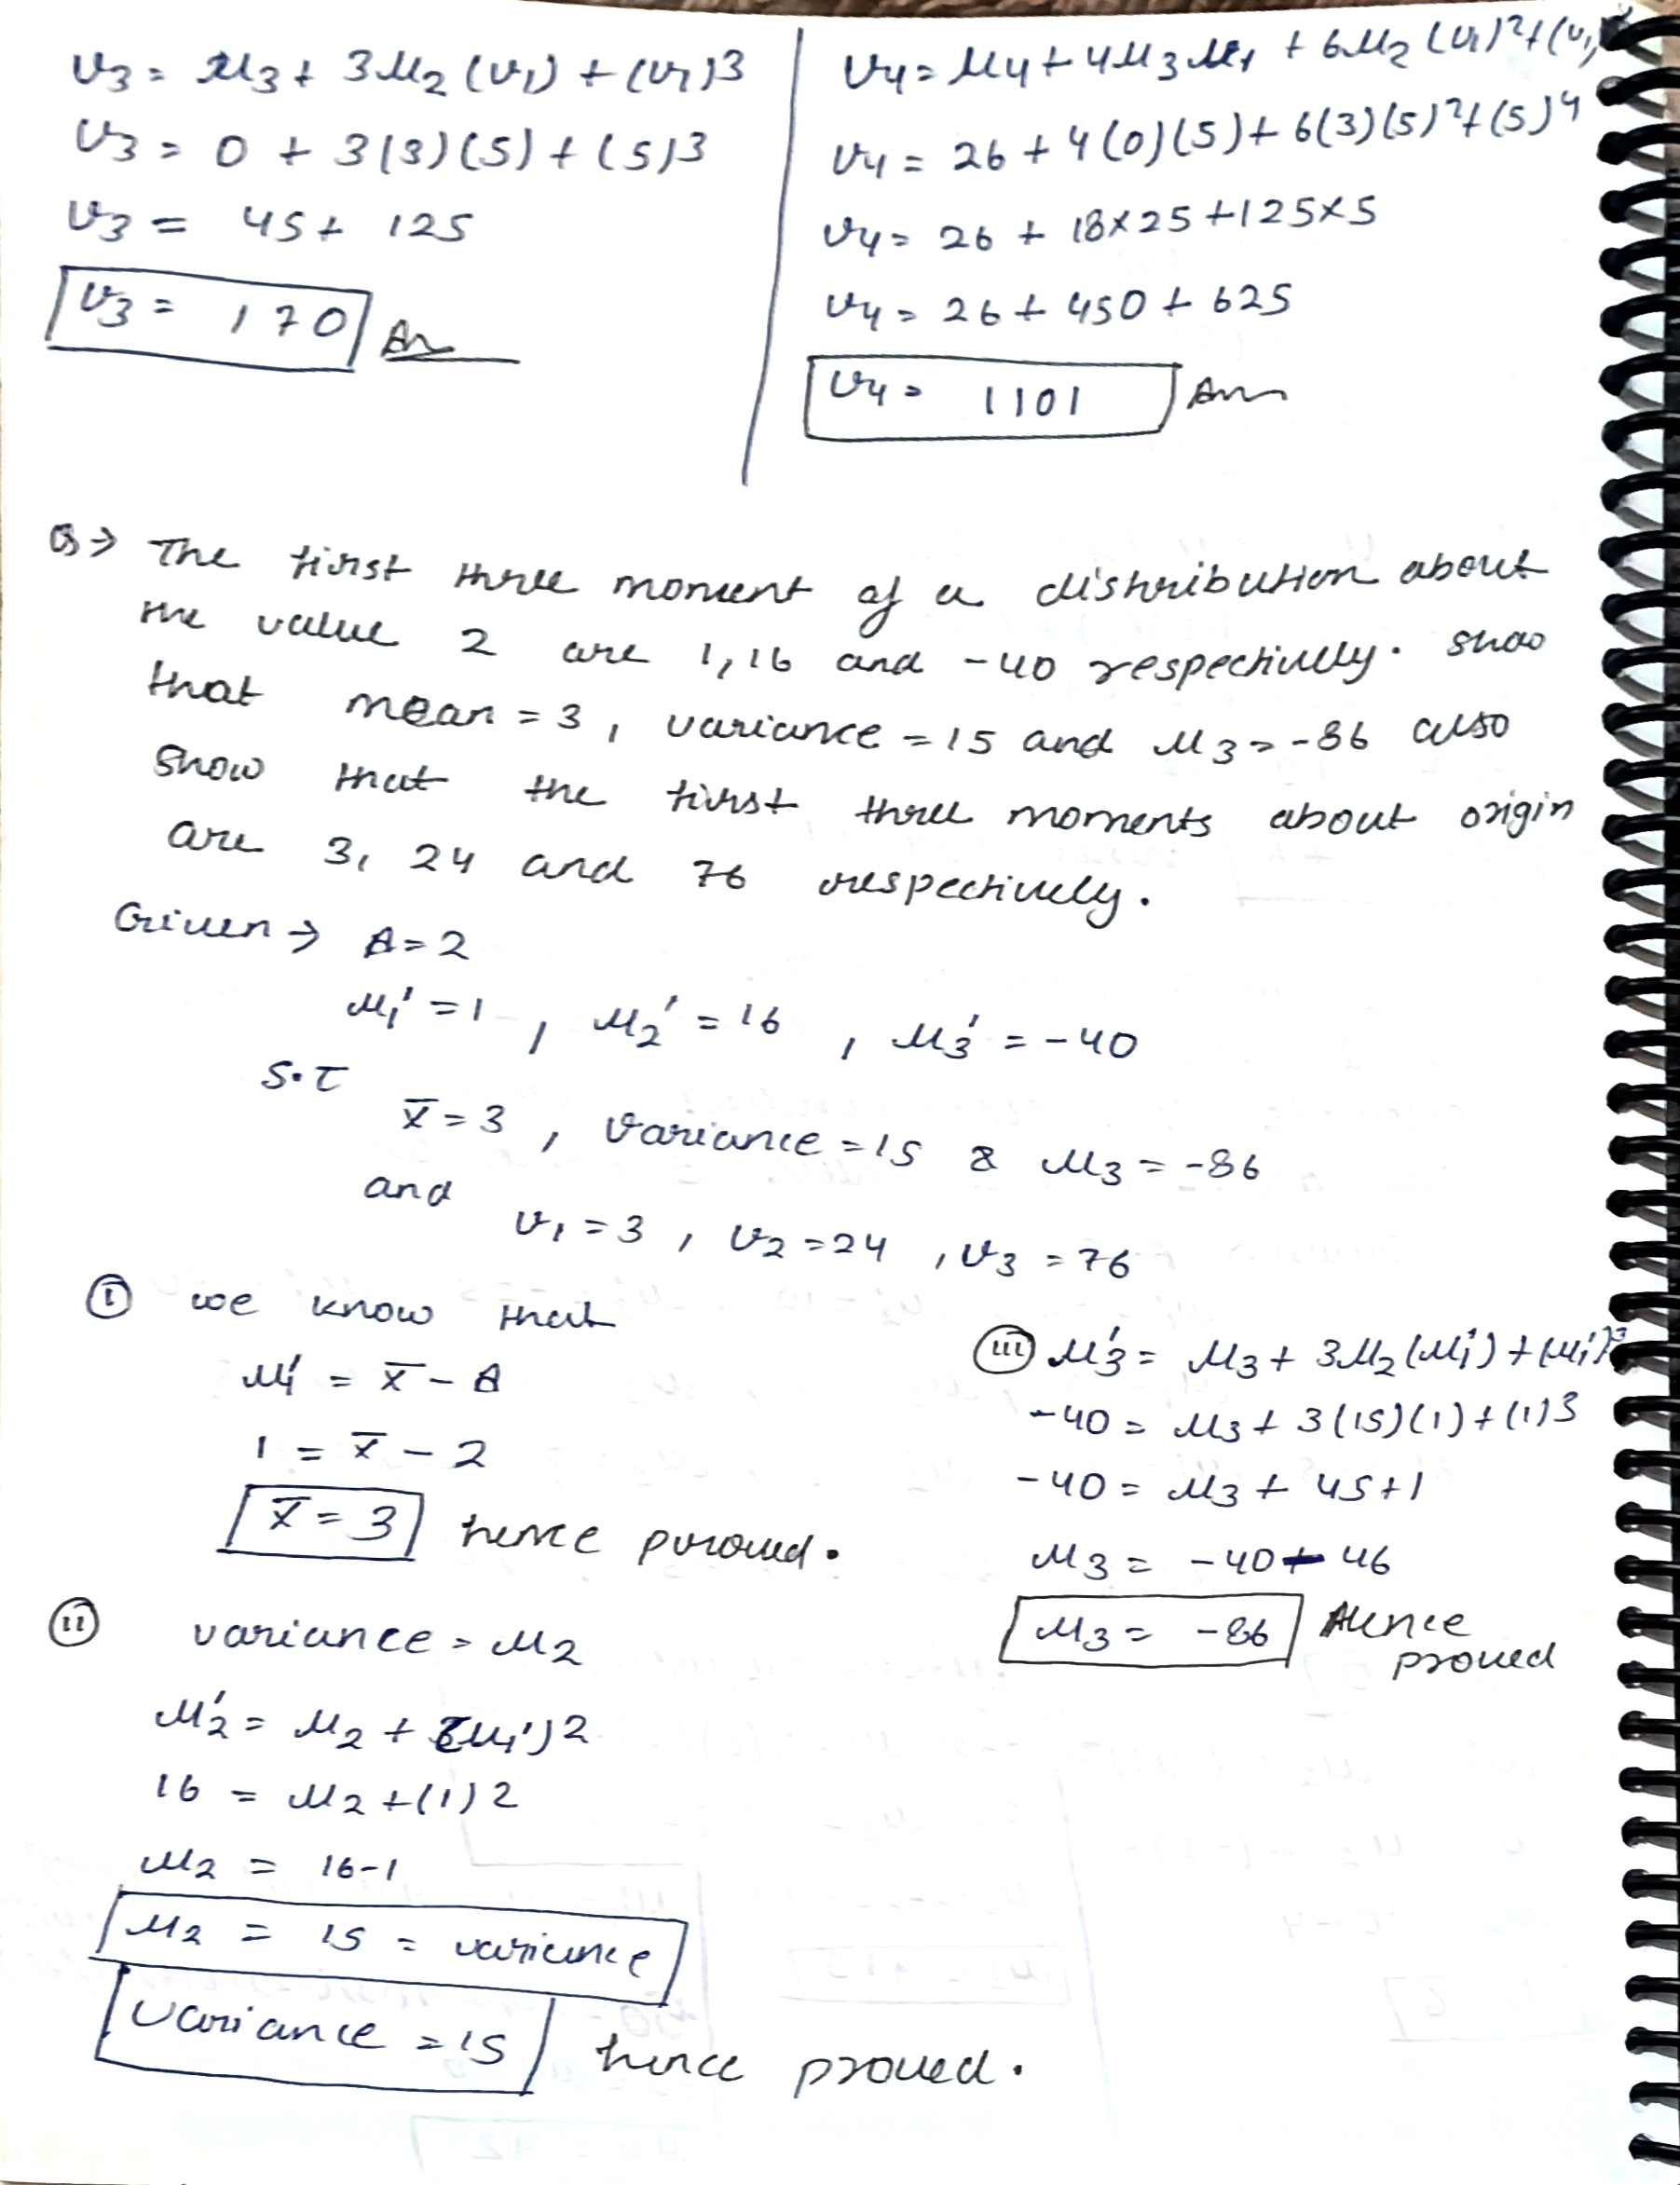 v3 = μ3 + 3μ2 (v1) + (v1)3
v3 = 0 + 3(3)(5) + (5)3
v3 = 45 + 125
v3 = 170 Ans
v4 = μ4 + 4μ3 μ1 + 6μ2 (v1)2 + (v1)
v4 = 26 + 4(0)(5) + 6(3)(5)2 + (5)4
v4 = 26 + 18×25 + 125×5
v4 = 26 + 450 + 625
v4 = 1101 Ans
Q → The first three moment of a distribution about
the value 2 are 1, 16 and -40 respectively. show
that mean = 3, variance = 15 and μ3 = -86 also
show that the first three moments about origin
are 3, 24 and 76 respectively.
Given → A = 2
μ1' = 1, μ2' = 16, μ3' = -40
S.T
x̄ = 3, variance = 15 & μ3 = -86
and
v1 = 3, v2 = 24, v3 = 76
(i) we know that
μ1' = x̄ - A
1 = x̄ - 2
x̄ = 3 hence proved.
(ii) variance = μ2
μ2' = μ2 + (μ1')2
16 = μ2 + (1)2
μ2 = 16-1
μ2 = 15 = variance
variance = 15 hence proved.
(iii) μ3' = μ3 + 3μ2 (μ1') + (μ1')3
-40 = μ3 + 3(15)(1) + (1)3
-40 = μ3 + 45+1
μ3 = -40 - 46
μ3 = -86 Hence
proved